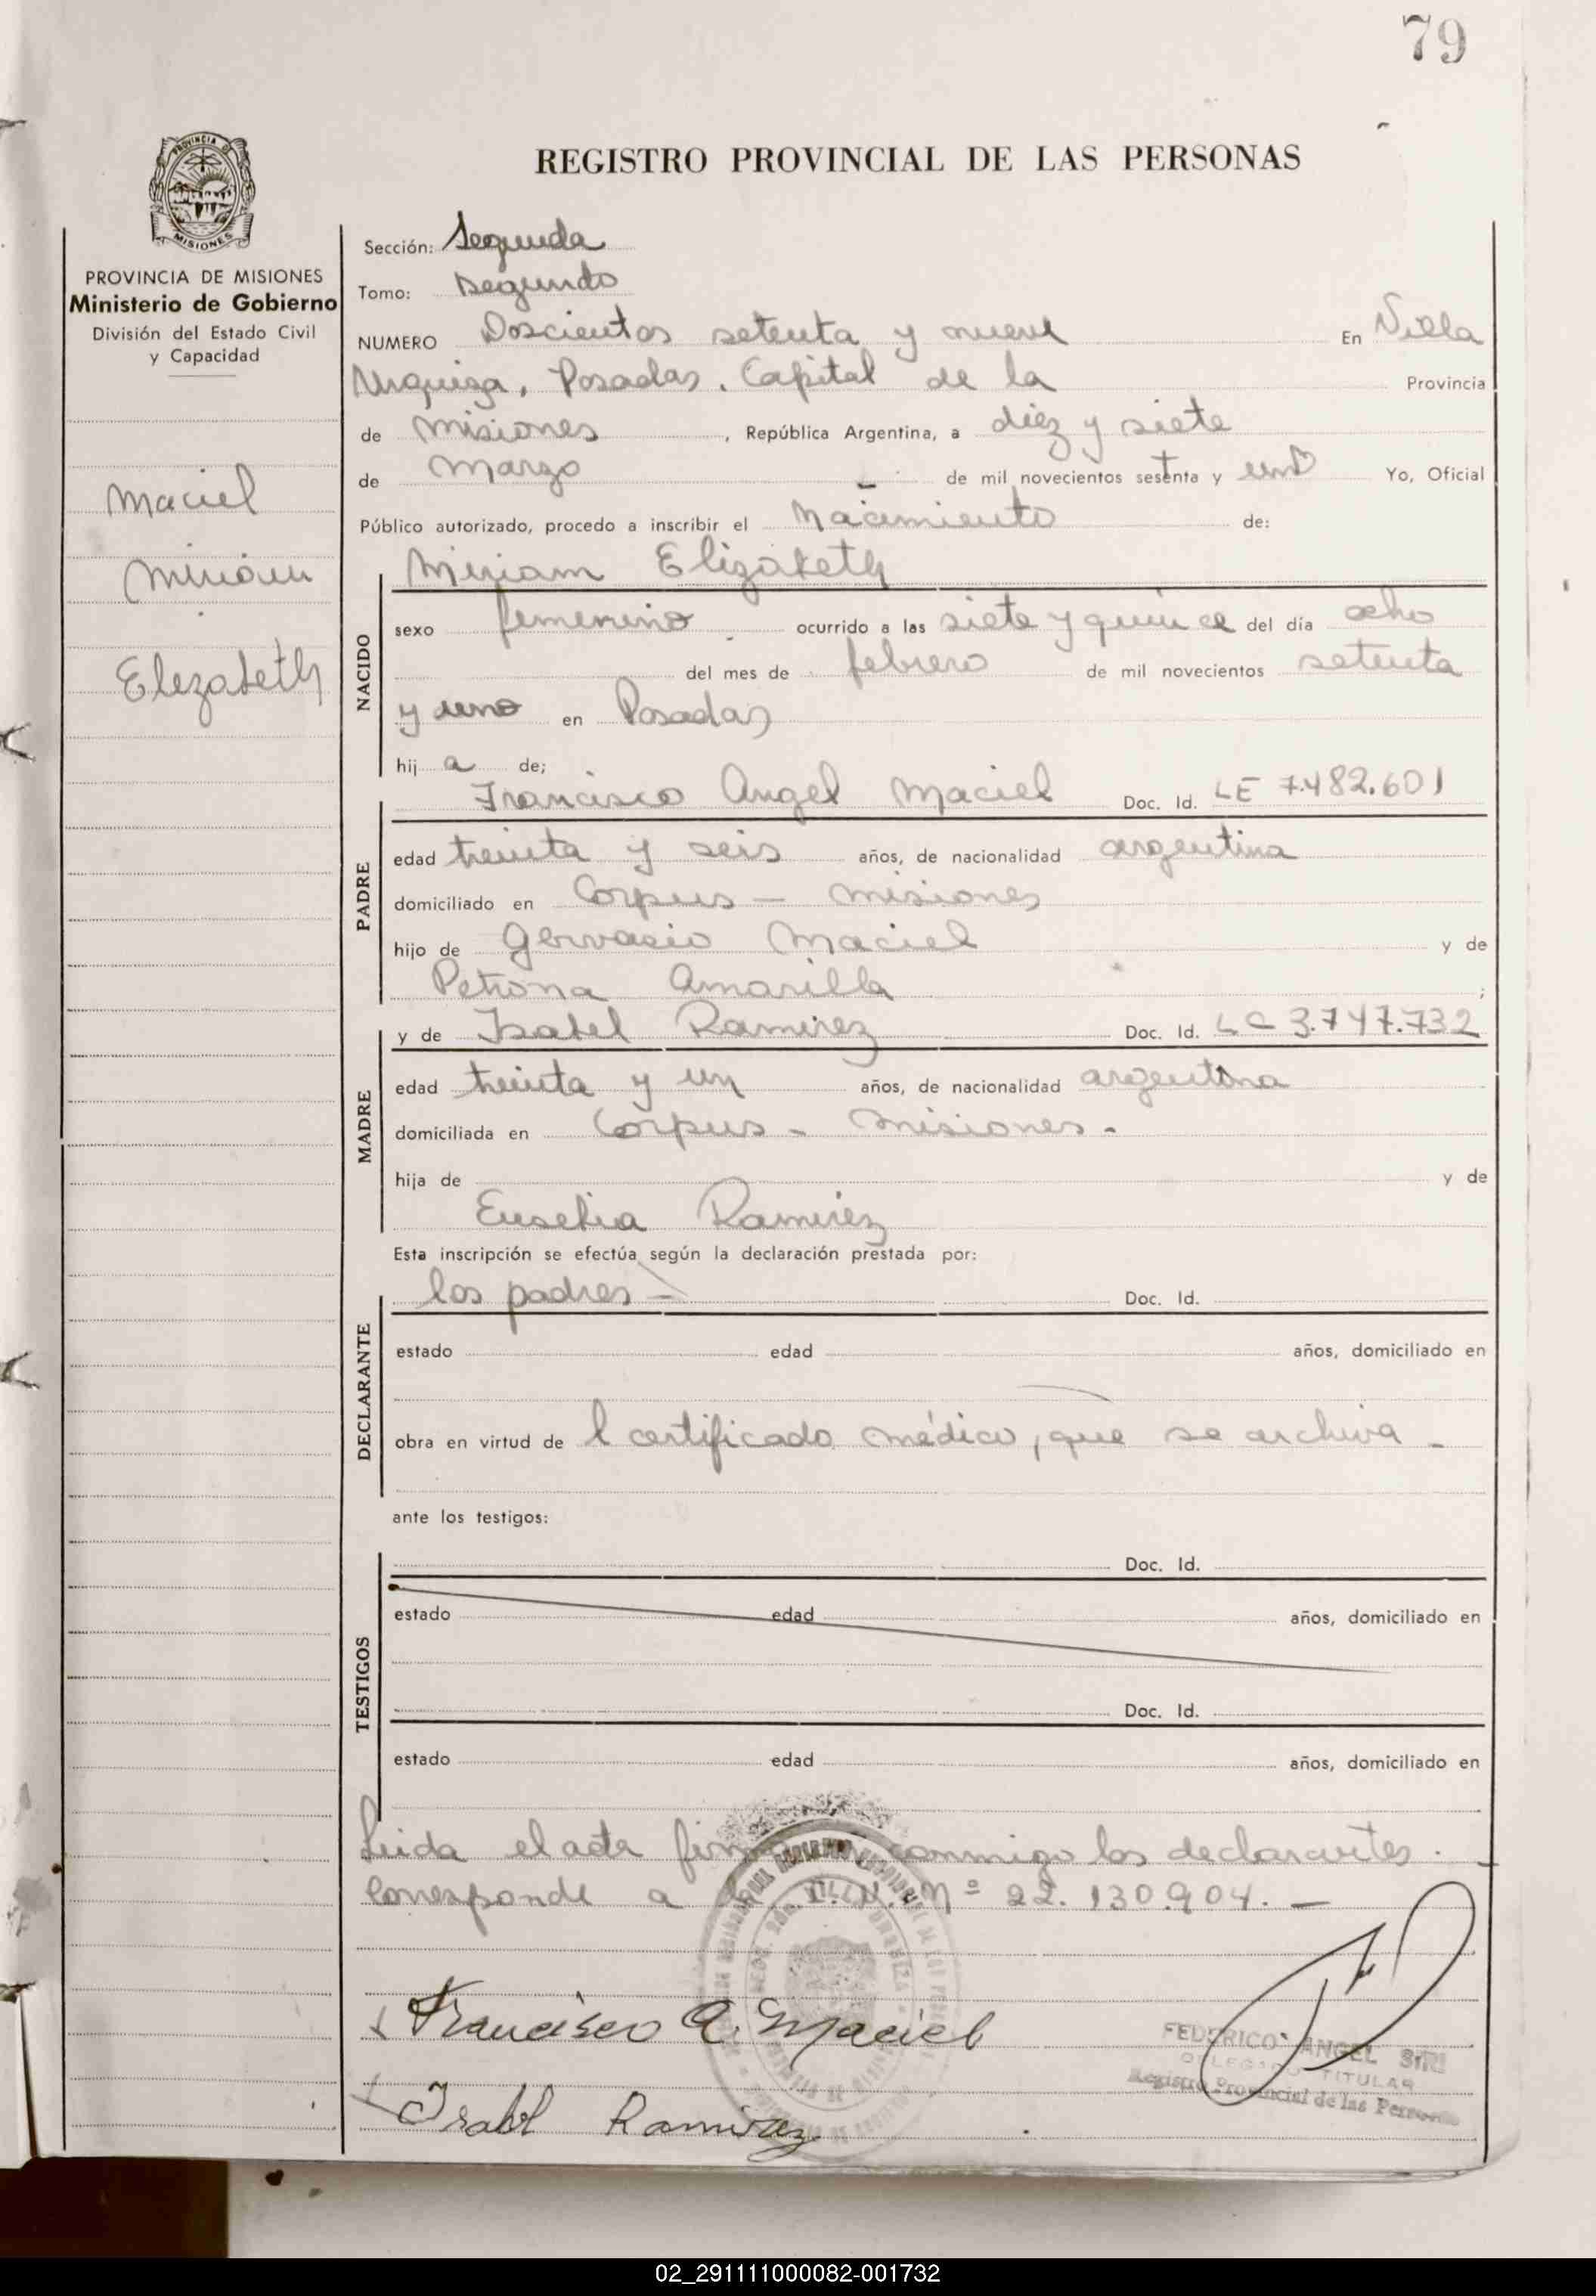 79
PROVINCIA DE
MISIONES
REGISTRO PROVINCIAL DE LAS PERSONAS
PROVINCIA DE MISIONES
Ministerio de Gobierno
División del Estado Civil
y Capacidad
Maciel
Miriam
Elezabeth
Sección: Segunda
Tomo: segundo
NUMERO Doscientos setenta y nueve En Villa
Urquiza, Posadas, Capital de la Provincia
de Misiones, República Argentina, a diez y siete
de Marzo de mil novecientos sesenta y uno Yo, Oficial
Público autorizado, procedo a inscribir el Nacimiento de:
Miriam Elizabeth
NACIDO
sexo femenino ocurrido a las siete y quince del día ocho
del mes de febrero de mil novecientos setenta
y uno en Posadas
hij a de;
Francisco Angel Maciel Doc. Id. LE 7.482.601
PADRE
edad treinta y seis años, de nacionalidad argentina
domiciliado en Corpus - Misiones
hijo de Gervasio Maciel y de
Petrona Amarilla ;
y de Isabel Ramirez Doc. Id. LC 3.747.732
MADRE
edad treinta y un años, de nacionalidad argentina
domiciliada en Corpus - Misiones.
hija de y de
Eusebia Ramirez
Esta inscripción se efectúa según la declaración prestada por:
los padres - Doc. Id.
DECLARANTE
estado edad años, domiciliado en
obra en virtud de l certificado médico, que se archiva -
ante los testigos:
Doc. Id.
TESTIGOS
estado edad años, domiciliado en
Doc. Id.
estado edad años, domiciliado en
Leida el acta firman conmigo los declarantes.
Corresponde a D.N.I. Nº 22.130.904. -
Francisco A. Maciel
FEDERICO ANGEL SIRI
DELEGADO TITULAR
Registro Provincial de las Personas
Isabl Ramirez
02_291111000082-001732